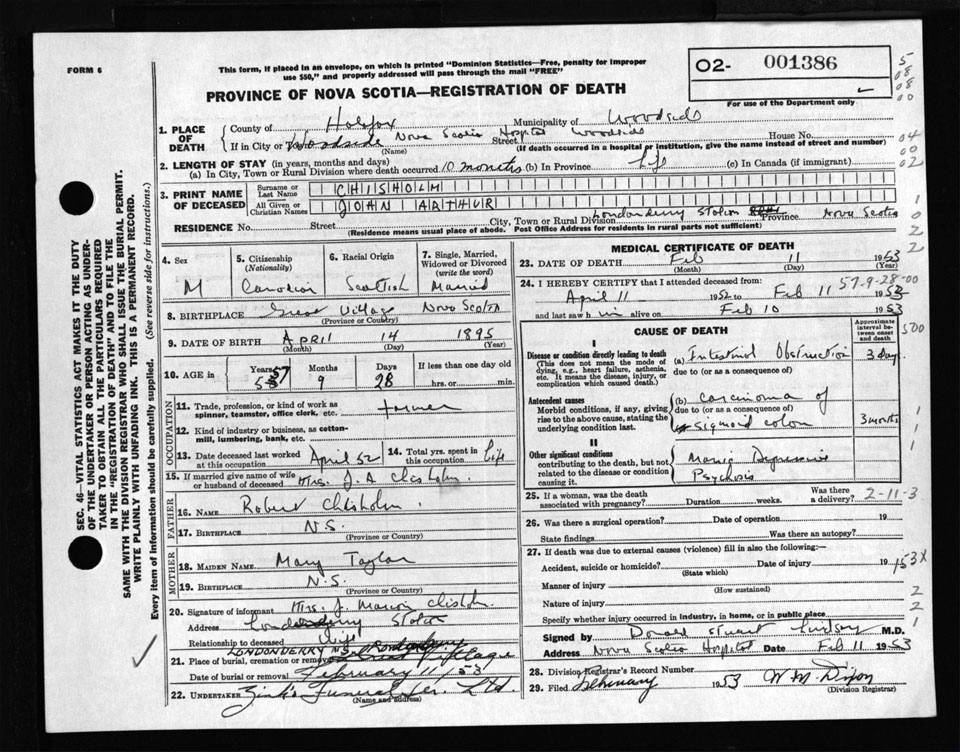 FORM 6
This form, if placed in an envelope, on which is printed "Dominion Statistics—Free, penalty for improper
use $50," and properly addressed will pass through the mail "FREE"
PROVINCE OF NOVA SCOTIA—REGISTRATION OF DEATH
02- 001386
For use of the Department only
5
08
08
00
04
00
02
1
0
2
2
1. PLACE OF DEATH
County of Halifax Municipality of Woodside
If in City or Woodside Nova Scotia Hospital Street Woodside House No.
(Name) (If death occurred in a hospital or institution, give the name instead of street and number)
2. LENGTH OF STAY (in years, months and days)
(a) In City, Town or Rural Division where death occurred 10 months (b) In Province Life (c) In Canada (if immigrant)
3. PRINT NAME OF DECEASED
Surname or Last Name CHISHOLM
All Given or Christian Names JOHN ARTHUR
RESIDENCE No. Street City, Town or Rural Division Londonderry Station Province Nova Scotia
(Residence means usual place of abode. Post Office Address for residents in rural parts not sufficient)
4. Sex M
5. Citizenship (Nationality) Canadian
6. Racial Origin Scottish
7. Single, Married, Widowed or Divorced (write the word) Married
8. BIRTHPLACE Great Village Nova Scotia
(Province or Country)
9. DATE OF BIRTH APRIL 14 1895
(Month) (Day) (Year)
10. AGE IN Years 57 Months 9 Days 28 If less than one day old
hrs. or min.
OCCUPATION
11. Trade, profession, or kind of work as spinner, teamster, office clerk, etc. Farmer
12. Kind of industry or business, as cotton-mill, lumbering, bank, etc.
13. Date deceased last worked at this occupation April 52
14. Total yrs. spent in this occupation Life
15. If married give name of wife or husband of deceased Mrs. J. A. Chisholm
FATHER
16. NAME Robert Chisholm
17. BIRTHPLACE N.S.
(Province or Country)
MOTHER
18. MAIDEN NAME Mary Taylor
19. BIRTHPLACE N.S.
(Province or Country)
20. Signature of informant Mrs. J. Marion Chisholm
Address Londonderry Station
Relationship to deceased Wife
LONDONDERRY NS
21. Place of burial, cremation or removal Great Village
Date of burial or removal February 11/53
22. UNDERTAKER Zink's Funeral Ser. Ltd.
(Name and address)
MEDICAL CERTIFICATE OF DEATH
23. DATE OF DEATH Feb 11 1953
(Month) (Day) (Year)
24. I HEREBY CERTIFY that I attended deceased from:
57-9-28-00
April 11 1952 to Feb 11 1953
and last saw h im alive on Feb 10 1953
CAUSE OF DEATH
Approximate interval between onset and death
500
I
Disease or condition directly leading to death
(This does not mean the mode of dying, e.g., heart failure, asthenia, etc. It means the disease, injury, or complication which caused death.)
(a) Intestinal Obstruction 3 days
due to (or as a consequence of)
Antecedent causes
Morbid conditions, if any, giving rise to the above cause, stating the underlying condition last.
(b) carcinoma of
due to (or as a consequence of)
sigmoid colon 3 months
1
1
1
II
Other significant conditions
contributing to the death, but not related to the disease or condition causing it.
Manic Depressive
Psychosis
25. If a woman, was the death associated with pregnancy? Duration weeks. Was there a delivery? 2-11-3
26. Was there a surgical operation? Date of operation 19
State findings Was there an autopsy?
27. If death was due to external causes (violence) fill in also the following:—
Accident, suicide or homicide? Date of injury 19 153X
(State which)
Manner of injury 2
(How sustained)
Nature of injury 2
Specify whether injury occurred in industry, in home, or in public place 1
Signed by Donald Stuart Lindsay M.D.
Address Nova Scotia Hospital Date Feb 11 1953
28. Division Registrar's Record Number
29. Filed February 1953 W. M. Dixon
(Division Registrar)
SEC. 46—VITAL STATISTICS ACT MAKES IT THE DUTY
OF THE UNDERTAKER OR PERSON ACTING AS UNDER-
TAKER TO OBTAIN ALL THE PARTICULARS REQUIRED
IN THE "REGISTRATION OF DEATH" AND TO FILE THE
SAME WITH THE DIVISION REGISTRAR WHO SHALL ISSUE THE BURIAL PERMIT.
WRITE PLAINLY WITH UNFADING INK. THIS IS A PERMANENT RECORD.
Every item of information should be carefully supplied. (See reverse side for instructions.)